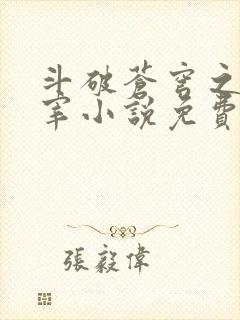 斗破蒼穹之
宰小說免費
張毅偉